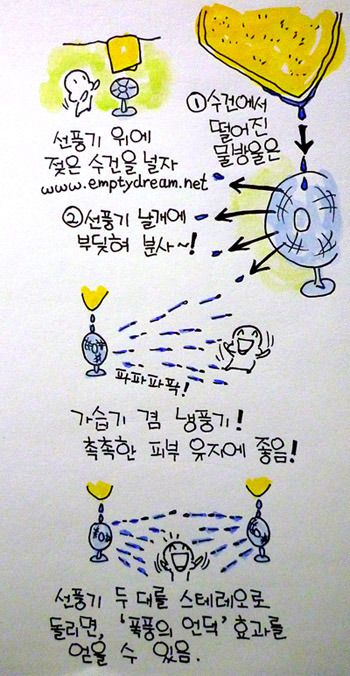 선풍기 위에
젖은 수건을 널자
www.emptydream.net
①수건에서
떨어진
물방울은
②선풍기 날개에
부딪혀 분사~!
파파파팍!
가습기 겸 냉풍기!
촉촉한 피부 유지에 좋음!
선풍기 두 대를 스테레오로
돌리면, '폭풍의 언덕' 효과를
얻을 수 있음.